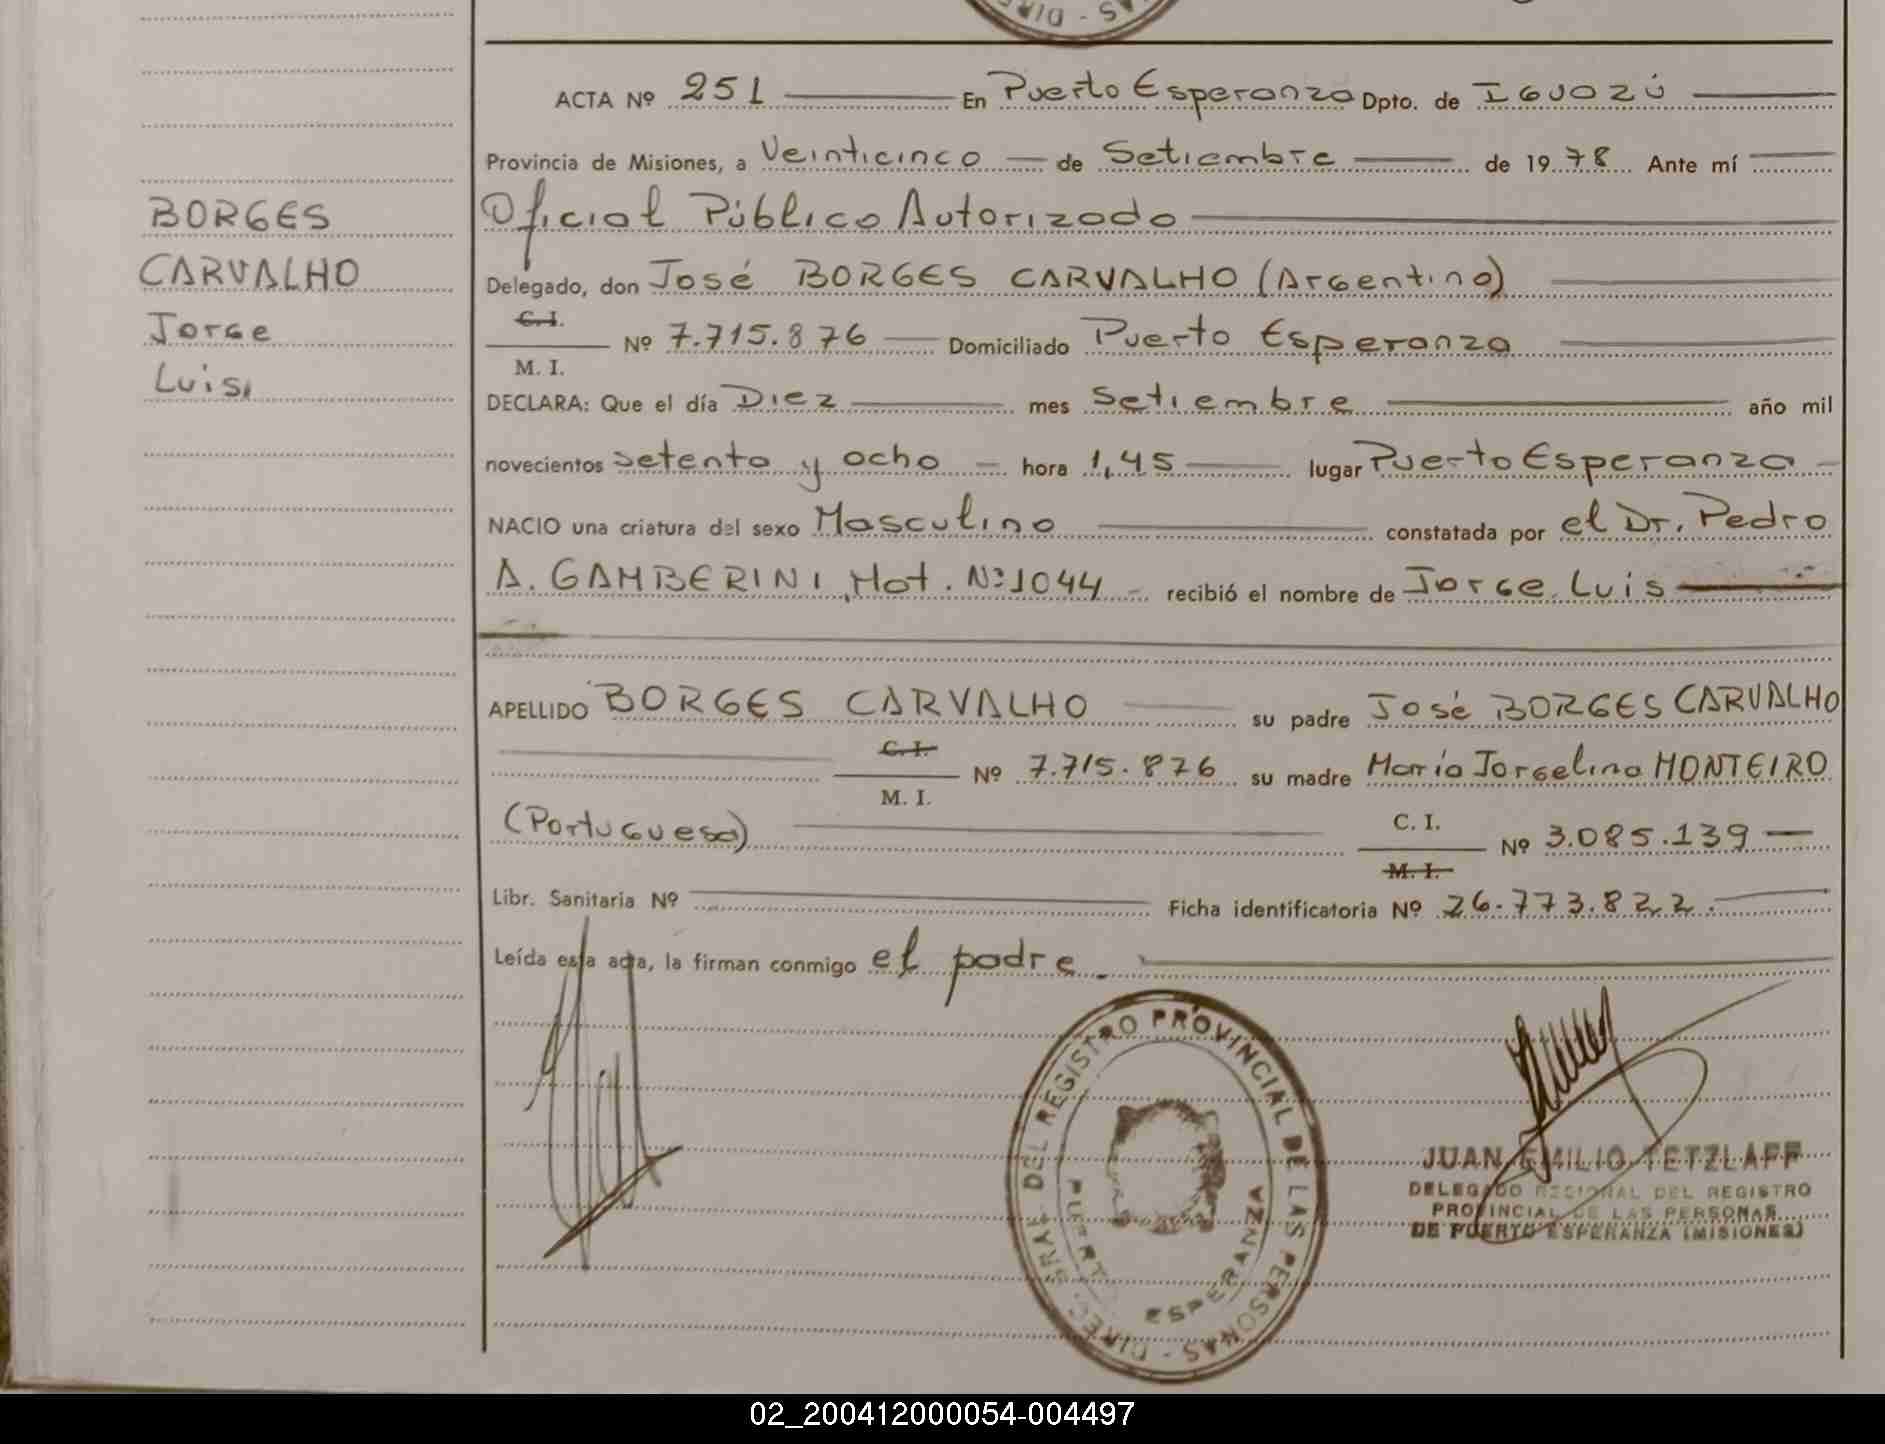 BORGES
CARVALHO
Jorge
Luis,
ACTA Nº 251 En Puerto Esperanza Dpto. de IGUAZÚ
Provincia de Misiones, a Veinticinco de Setiembre de 19 78 Ante mí
Oficial Público Autorizado
Delegado, don José BORGES CARVALHO (Argentino)
C.I.
M. I. Nº 7.715.876 Domiciliado Puerto Esperanza
DECLARA: Que el día Diez mes Setiembre año mil
novecientos setenta y ocho hora 1,45 lugar Puerto Esperanza
NACIO una criatura del sexo Masculino constatada por el Dr. Pedro
A. GAMBERINI, Mat. Nº 1044 recibió el nombre de Jorge Luis
APELLIDO BORGES CARVALHO su padre José BORGES CARVALHO
C.I.
M. I. Nº 7.715.876 su madre María Jorgelina MONTEIRO
(Portuguesa) C. I.
M. I. Nº 3.085.139
Libr. Sanitaria Nº Ficha identificatoria Nº 26.773.822.
Leída esta acta, la firman conmigo el padre.
DIREC. GRAL. DEL REGISTRO PROVINCIAL DE LAS PERSONAS -
PUERTO ESPERANZA
JUAN EMILIO TETZLAFF
DELEGADO REGIONAL DEL REGISTRO
PROVINCIAL DE LAS PERSONAS
DE PUERTO ESPERANZA (MISIONES)
02_200412000054-004497